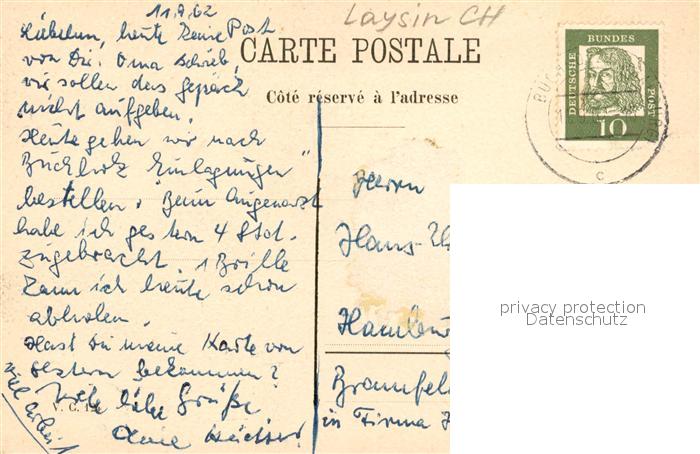 Laysin CH
11.9.62
heute keine Post
von Dir. Oma schrieb,
wir sollen das gepäck
nicht aufgeben.
Heute gehen wir nach
Buchholz Einlagungen
bestellen. Beim Augenarzt
habe ich gestern 4 Std.
zugebracht. 1 Brille
kann ich heute schon
abholen.
Hast Du meine Karte von
gestern bekommen?
Viele liebe Grüße
CARTE POSTALE
Côté réservé à l'adresse
V. C.
DEUTSCHE BUNDESPOST
10
c
Herrn
Hans-
Hamburg
Bramfel
in Firma
privacy protection
Datenschutz